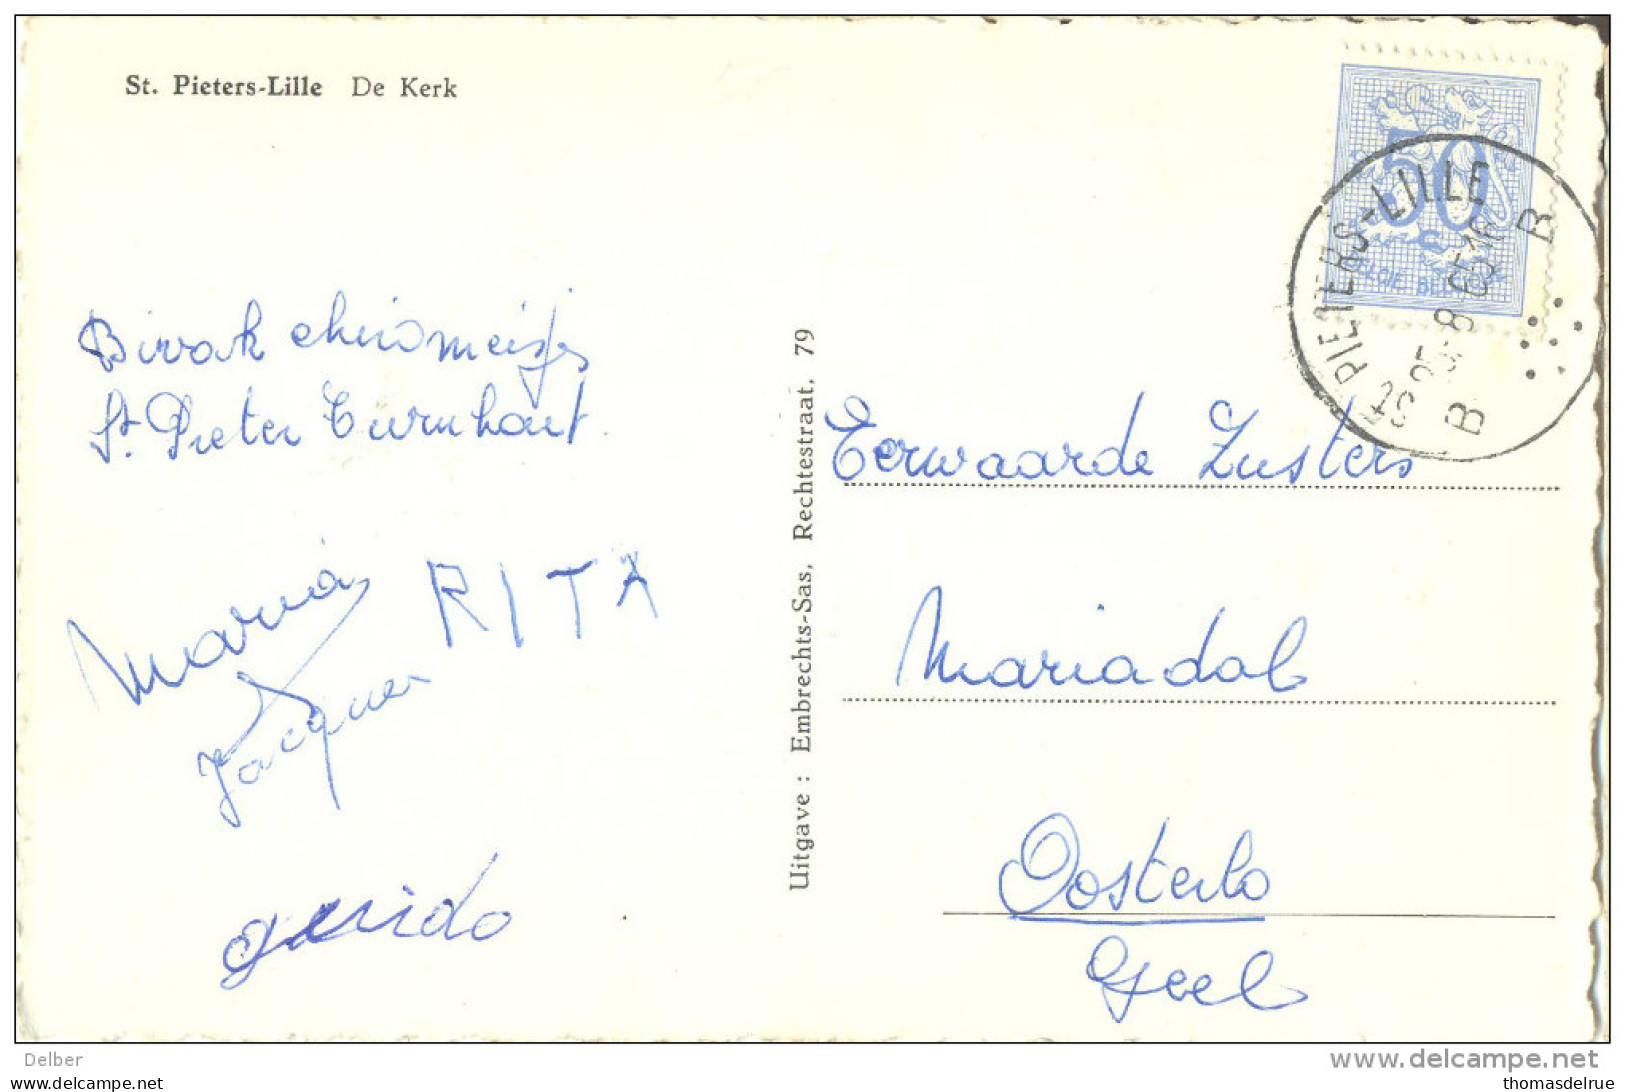 St. Pieters-Lille De Kerk
50
BELGIE BELGIQUE
St PIETERS-LILLE
25-8 65 16
B B
Bivak chiromeisjes
St. Pieter Turnhout.
Maria
RITA
Jacques
Guido
Uitgave : Embrechts-Sas, Rechtestraat, 79
Eerwaarde Zusters
Mariadal
Oosterlo
Geel
Delber
www.delcampe.net
thomasdelrue